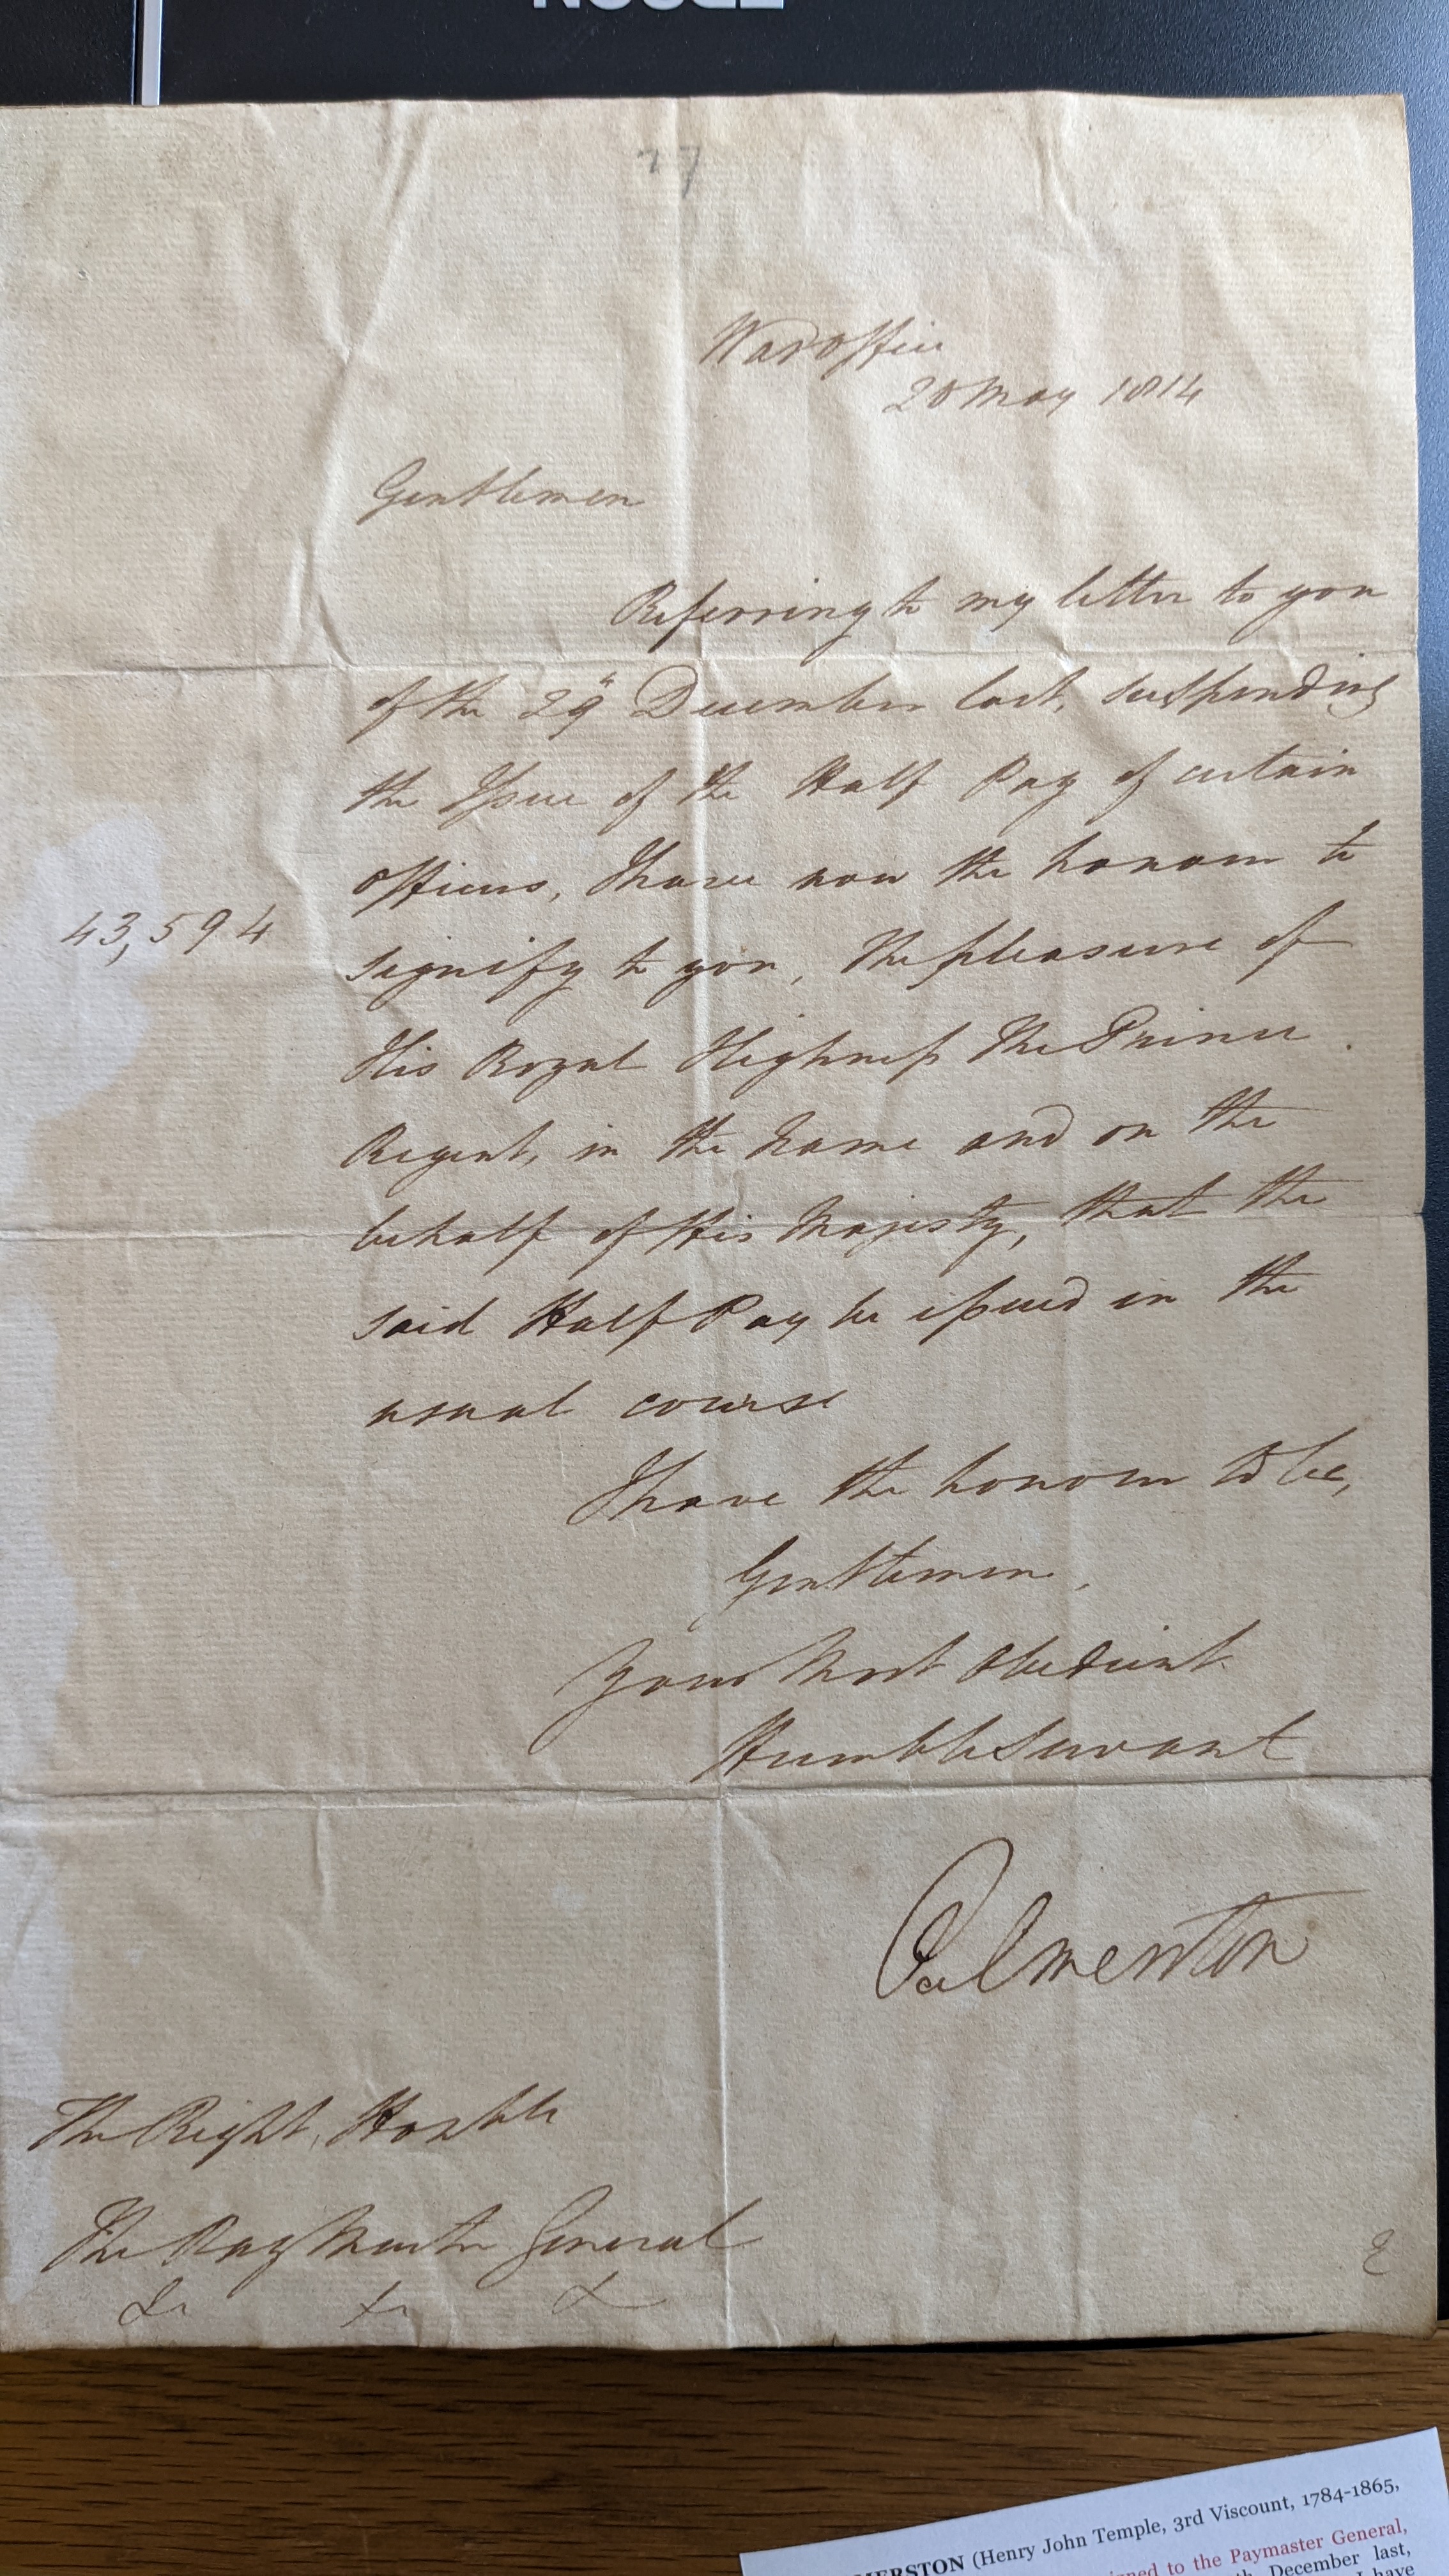 27
War Office
20 May 1814
Gentlemen
Referring to my letter to you
of the 29" December last, suspending
the Issue of the Half Pay of certain
Officers, I have now the honour to
43,594
signify to you, the pleasure of
His Royal Highness The Prince
Regent, in the Name and on the
behalf of His Majesty, that the
said Half Pay be issued in the
usual course
I have the honour to be,
Gentlemen,
Your Most Obedient
Humble Servant
Palmerston
The Right Honble
The Pay Master General
&c &c &c
MERSTON (Henry John Temple, 3rd Viscount, 1784-1865,
to the Paymaster General,
December last,
have